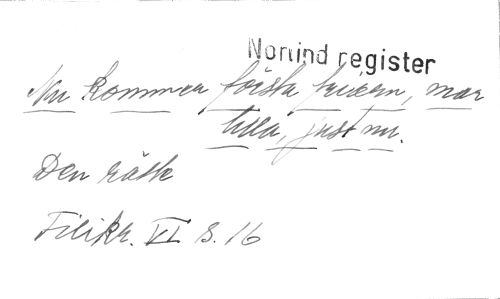 Norlind register
Nu kommer första friaren, mor
lilla, just nu.
Den rätte
Filikr. VI s. 16